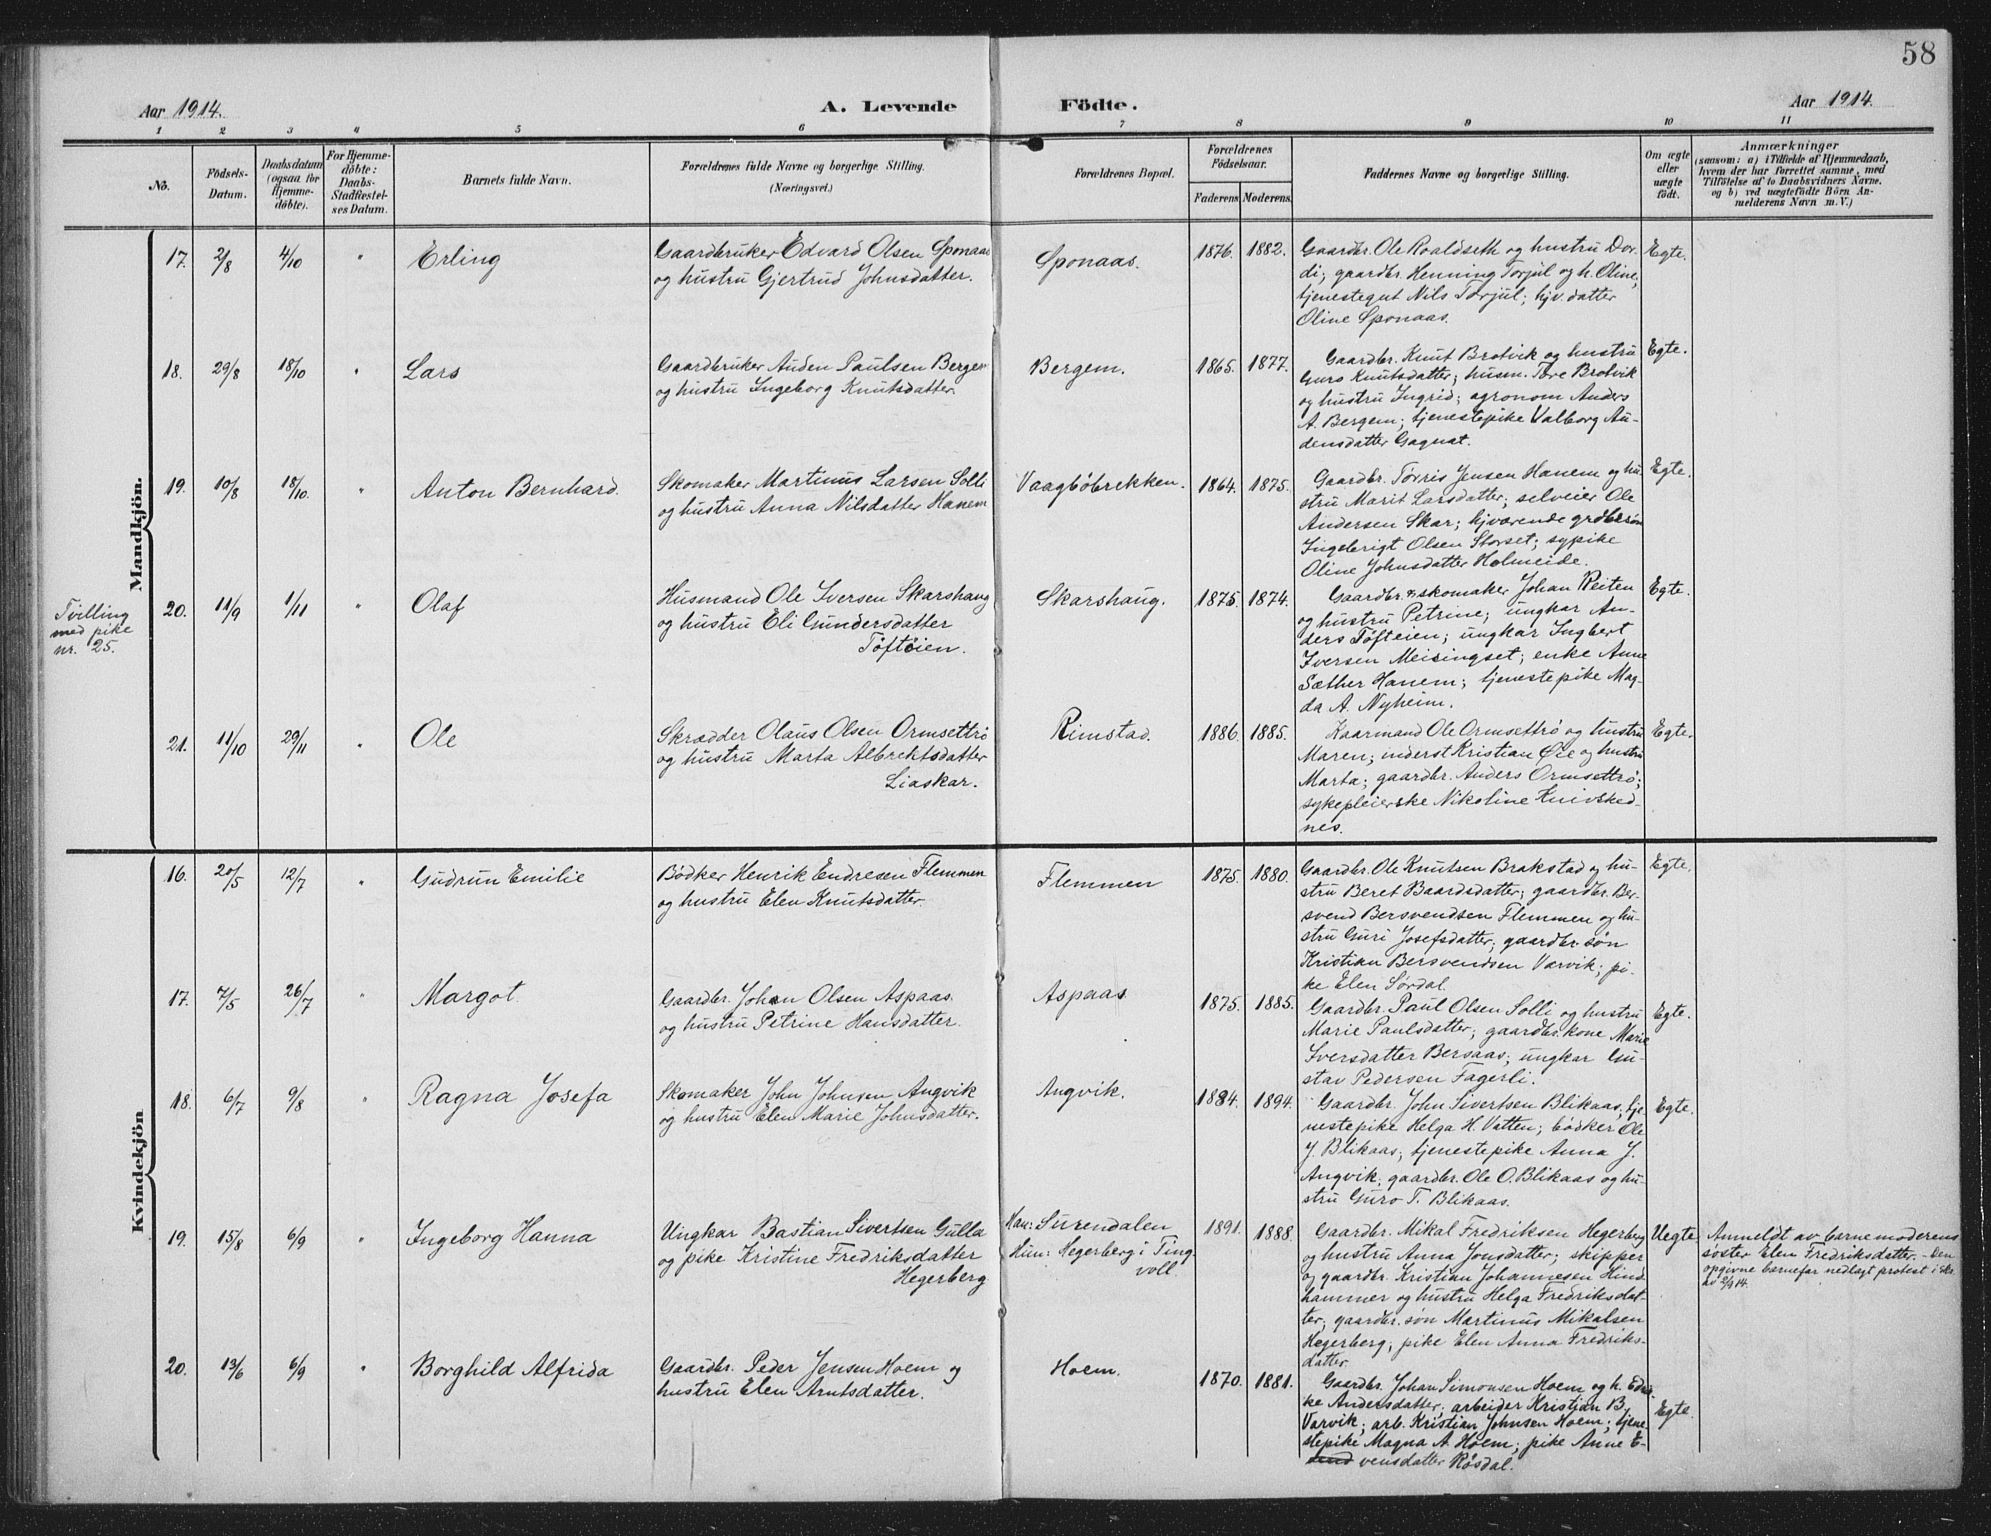 58
Aar 1914.
A. Levende Födte.
Aar 1914.
1 2 3 4 5 6 7 8 9 10 11
No.
Födsels-
Datum.
Daabsdatum
(ogsaa for
Hjemme-
döbte).
For Hjemme-
döbte:
Daabs-
Stadfæstel-
ses Datum.
Barnets fulde Navn.
Forældrenes fulde Navne og borgerlige Stilling.
(Næringsvei.)
Forældrenes Bopæl.
Forældrenes
Födselsaar.
Faderens. Moderens.
Faddernes Navne og borgerlige Stilling.
Om ægte
eller
uægte
födt.
Anmærkninger
(saasom: a) i Tilfælde af Hjemmedaab,
hvem der har forrettet samme, med
Tilföielse af to Daabsvidners Navne,
og b) ved uægtefödte Börn An-
melderens Navn m. V.)
Mandkjön.
17. 2/8 4/10 " Erling
Gaardbruker Edvard Olsen Sponaas
og hustru Gjertrud Johnsdatter.
Sponaas. 1876. 1882.
Gaardbr. Ole Roaldseth og hustru Dor-
di; gaardbr. Henning Torjul og h. Oline,
tjenestegut Nils Torjul; hjv. datter
Oline Sponaas.
Egte.
18. 29/8 18/10 " Lars
Gaardbruker Auden Paulsen Bergem
og hustru Ingeborg Knutsdatter.
Bergem. 1865. 1877.
Gaardbr. Knut Brotvik og hustru
Guro Knutsdatter; husm. Tore Brotvik
og hustru Ingrid; agronom Anders
A. Bergem; tjenestepike Valborg Au-
densdatter Gagnat.
Egte.
19. 10/8 18/10. " Anton Bernhard.
Skomaker Martinus Larsen Solli
og hustru Anna Nilsdatter Hanem
Vaagbøbrekken. 1864. 1875.
Gaardbr. Torris Jensen Hanem og hu-
stru Marit Larsdatter; selveier Ole
Andersen Skar; hjværende grdbrsøn
Ingebrigt Olsen Storset; sypike
Oline Johnsdatter Holmeide.
Egte.
Tvilling
med pike
nr. 25.
20. 11/9 1/11 " Olaf
Husmand Ole Iversen Skarshaug
og hustru Eli Gundersdatter
Tøftøien.
Skarshaug. 1875. 1874.
Gaardbr. & skomaker Johan Reiten
og hustru Petrine; ungkar An-
ders Tøfteien; ungkar Ingbert
Iversen Meisingset; enke Anne
Sæther Hanem; tjenestepike Mag-
da A. Nyheim.
Egte.
21. 11/10 29/11 " Ole
Skrædder Olaus Olsen Ormsettrø
og hustru Marta Albrektsdatter
Liaskar.
Rimstad. 1886. 1885.
Kaarmand Ole Ormsettrø og hustru
Maren; inderst Kristian Øie og hustru
Marta; gaardbr. Anders Ormsettrø;
sykepleierske Nikoline Knivsked-
nes.
Egte.
Kvindekjön
16. 20/5 12/7 " Gudrun Emilie
Bødker Henrik Endresen Flemmen
og hustru Elen Knutsdatter.
Flemmen 1875. 1880.
Gaardbr. Ole Knutsen Brakstad og hu-
stru Beret Baardsdatter; gaardbr. Ber-
svend Bersvendsen Flemmen og hu-
stru Guri Josefsdatter; gaardbr. søn
Kristian Bersvendsen Varvik; pi-
ke Elen Sørdal.
Egte.
17. 7/5 26/7 " Margot.
Gaardbr. Johan Olsen Aspaas.
og hustru Petrine Hansdatter.
Aspaas 1875. 1885.
Gaardbr. Paul Olsen Solli og hustru
Marie Paulsdatter; gaardbr. kone Marie
Iversdatter Bersaas; ungkar Gu-
stav Pedersen Fagerli.
Egte.
18. 6/7 9/8 " Ragna Josefa
Skomaker John Johnsen Angvik
og hustru Elen Marie Johnsdatter.
Angvik. 1884. 1894.
Gaardbr. John Sivertsen Blikaas, tje-
nestepike Helga H. Vatten; bødker Ole
J. Blikaas; tjenestepike Anna J.
Angvik; gaardbr. Ole O. Blikaas og hu-
stru Guro T. Blikaas.
Egte.
19. 15/8 6/9 Ingeborg Hanna
Ungkar Bastian Sivertsen Gulla
og pike Kristine Fredriksdatter
Hegerberg
Han: Surendalen
Hun: Hegerberg i Ting
voll.
1891. 1888.
Gaardbr. Mikal Fredriksen Hegerberg
og hustru Anna Jonsdatter; skipper
og gaardbr. Kristian Johannesen Hind
hammer og hustru Helga Fredriksdat-
ter; gaardbr. søn Martinus Mikalsen
Hegerberg; pike Elen Anna Fredriks-
datter.
Uegte
Anmeldt av barnemoderens
søster Elen Fredriksdatter. - Den
opgivne barnefar nedlagt protest i skr.
av 2/9 14.
20. 13/6 6/9 " Borghild Alfrida
Gaardbr. Peder Jensen Hoem og
hustru Elen Arntsdatter.
Hoem. 1870. 1881.
Gaardbr. Johan Simonsen Hoem og h. Edri-
ke Andersdatter; arbeider Kristian B.
Varvik; arb. Kristian Johnsen Hoem; tjene-
stepike Magna A. Hoem; pike Anne E-
vensdatter Røsdal.
Egte.